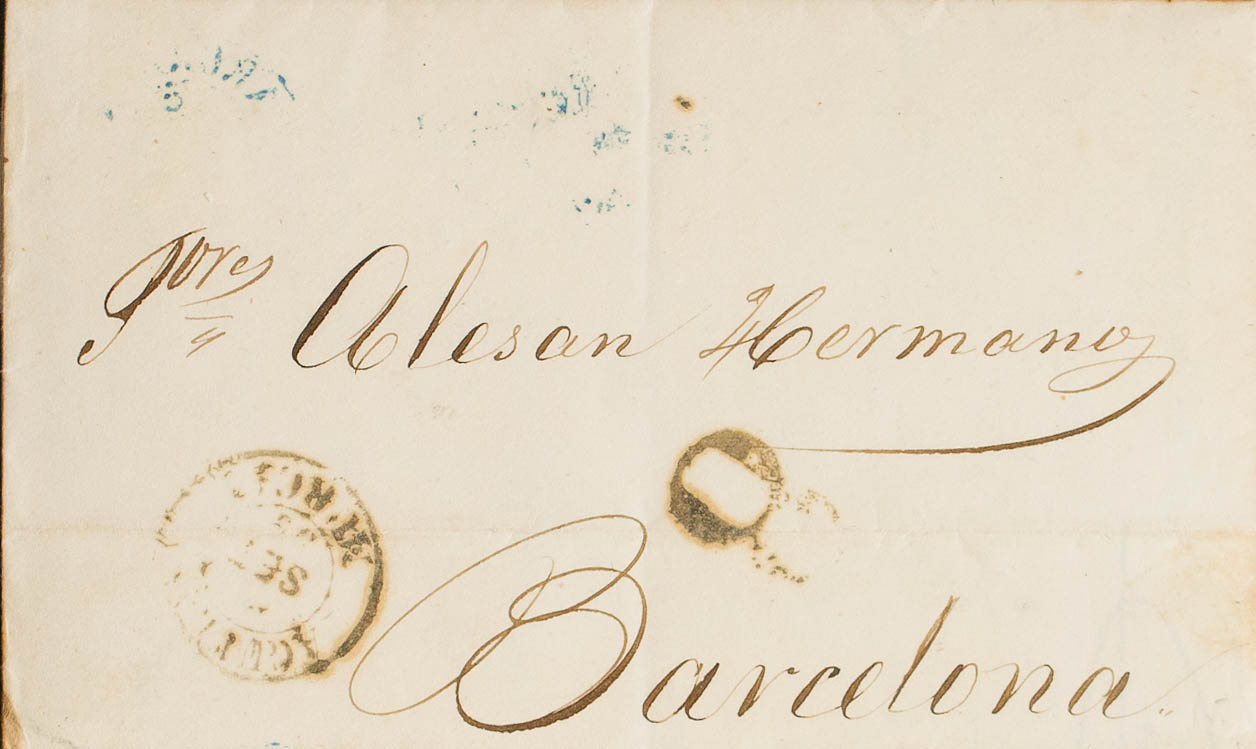 Sres Alesan Hermanos
SET
Barcelona.